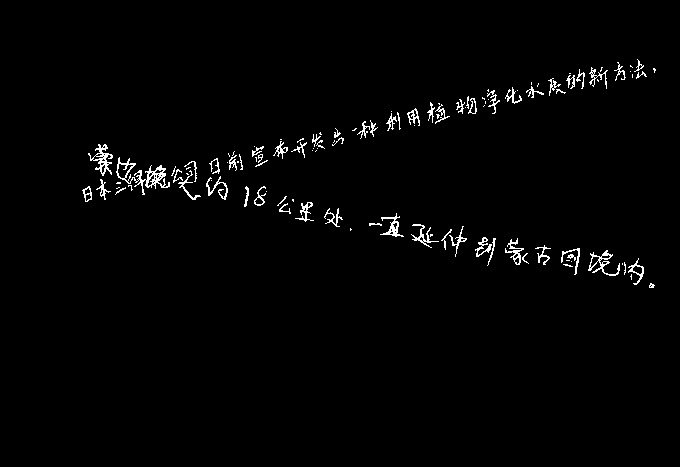 日本三公司日前宣布开发出一种利用植物净化水质的新方法，
蒙边约18公里处，一直延伸到蒙古国境内。